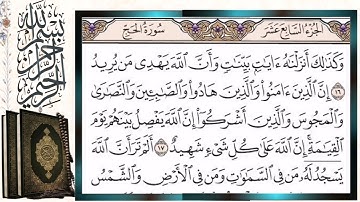 الجزء السابع عشر
سورة الحج
بسم الله الرحمن الرحيم
وَكَذَٰلِكَ أَنزَلْنَٰهُ ءَايَٰتٍۭ بَيِّنَٰتٍ وَأَنَّ ٱللَّهَ يَهْدِى مَن يُرِيدُ
١٦ إِنَّ ٱلَّذِينَ ءَامَنُوا۟ وَٱلَّذِينَ هَادُوا۟ وَٱلصَّٰبِـِٔينَ وَٱلنَّصَٰرَىٰ
وَٱلْمَجُوسَ وَٱلَّذِينَ أَشْرَكُوٓا۟ إِنَّ ٱللَّهَ يَفْصِلُ بَيْنَهُمْ يَوْمَ
ٱلْقِيَٰمَةِ إِنَّ ٱللَّهَ عَلَىٰ كُلِّ شَىْءٍ شَهِيدٌ ١٧ أَلَمْ تَرَ أَنَّ ٱللَّهَ
يَسْجُدُ لَهُۥ مَن فِى ٱلسَّمَٰوَٰتِ وَمَن فِى ٱلْأَرْضِ وَٱلشَّمْسُ